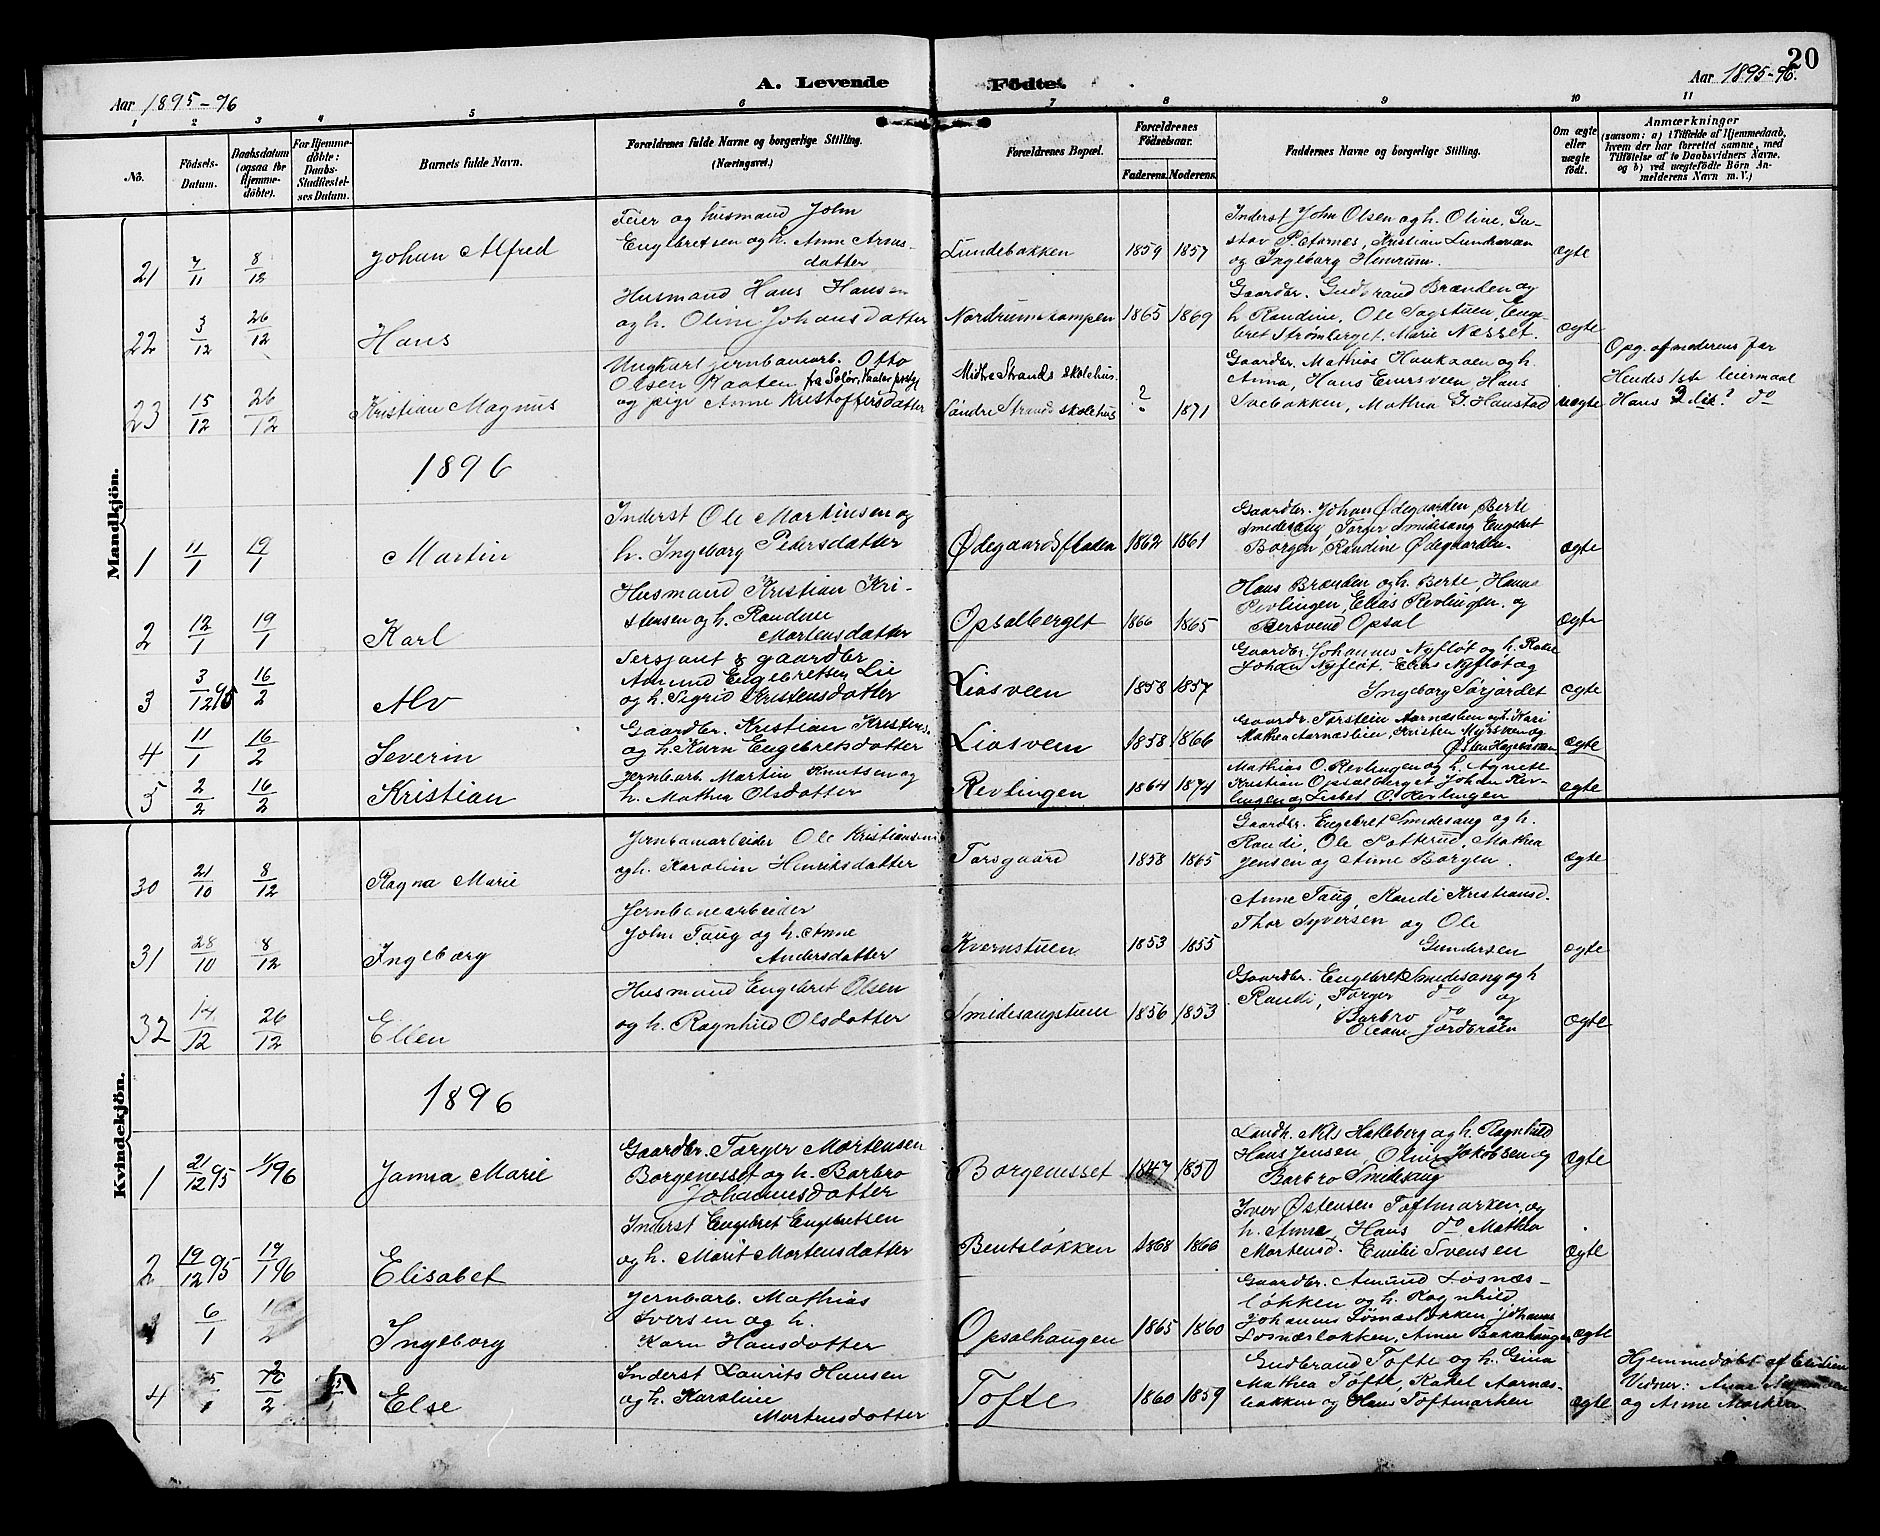 20
Aar 1895-96
A. Levende Födte.
Aar 1895-96.
1 2 3 4 5 6 7 8 9 10 11
No.
Födsels-Datum.
Daabsdatum (ogsaa for Hjemmedöbte).
For Hjemmedöbte: Daabs-Stadfæstelses Datum.
Barnets fulde Navn.
Forældrenes fulde Navne og borgerlige Stilling. (Næringsvei.)
Forældrenes Bopæl.
Forældrenes Födselsaar.
Faderens. Moderens.
Faddernes Navne og borgerlige Stilling.
Om ægte eller uægte födt.
Anmærkninger
(saasom: a) i Tilfælde af Hjemmedaab, hvem der har forrettet samme, med Tilföielse af to Daabsvidners Navne. og b) ved uægtefödte Börn Anmelderens Navn m. V.)
Mandkjön.
21 7/11 8/12 Johan Alfred
Feier og husmand John
Engebretsen og h. Anne Arnesdatter
Lundebakken 1859 1857
Inderst John Olsen og h. Oline, Gustav P. Aarnes, Kristian
og Ingeborg
ægte
22 3/12 26/12 Hans
Husmand Hans Hansen
og h. Oline Johansdatter
Nordrumsampen 1865 1869
Gaardbr. Gudbrand Brænden og
h. Randine, Ole Sagstuen, Engebret Strømberget, Marie Næsset.
ægte
23 15/12 26/12 Kristian Magnus
Ungkarl jernbanearb. Otto
Olsen Kaaten, fra Solør,
og pige Anne Kristoffersdatter
Midtre Strands skolehus.
Søndre Strand skolehus ? 1871
Gaardbr. Mathias Haukaaen og h.
Anna, Hans Hans
Svebakken, Mathea G. Haustad
uægte
Opg. af moderens far
Hendes 1ste leiermaal
Hans 2 do
1896
1 11/1 19/1 Martin
Inderst Ole Martinsen og
h. Ingeborg Pedersdatter
Ødegaardsfladen 1862 1861
Gaardbr. Johan Ødegaarden, Berte
Smidesang, Torger Smidesang Engebret
Borgen, Randine Ødegaarden.
ægte
2 12/1 19/1 Karl
Husmand Kristian Kristensen og h. Randine
Mortensdatter
Opsalberget 1866 1865
Hans Brænden og h. Berte, Hans
Revlingen, Elias Revlingen, og
Bersvend Opsal
ægte
3 3/12 95 16/2 Alv
Sersjant & gaardbr
Amund Engebretsen Lie
og h. Sigrid Kristensdatter
Liasveen 1858 1857
Gaardbr. Johannes Nyfløt og h.
Johan Nyfløt, Elias Nyfløt og
Ingeborg Sørjordet
ægte
4 11/1 16/2 Severin
Gaardbr. Kristian Kristens.
og h. Karn Engebretsdatter
Liasveen 1858 1866
Gaardbr. Torstein Aarnæslien og h. Kari
Mathea Aarnæslien, Kristen Myrsveen og
ægte
5 2/2 16/2 Kristian
Jernbarb. Martin Knutsen og
h. Mathea Olsdatter
Revlingen 1864 1874
Mathias O. Revlingen og h. Agnete
Kristian Opsalberget Johan Revlingen og Lisbet O. Revlingen
ægte
Kvindekjön.
30 21/10 8/12 Ragna Marie
Jernbanearbeider Ole Kristiansen
og h. Karoline Henriksdatter
Torsgaard 1858 1865
Gaardbr. Engebret Smidesang og h.
Randi, Ole Potterud, Mathea
Jensen og Anne Borgen.
ægte
31 28/10 8/12 Ingeborg
Jernbanearbeider
John Taug og h. Anne
Andersdatter
Kvernstuen 1853 1855
Anne Taug, Randi Kristiansd.
Thor Syversen og Ole
Gundersen
ægte
32 14/12 26/12 Ellen
Husmand Engebret Olsen
og h. Ragnhild Olsdatter
Smidesangstuen 1856 1853
Gaardbr. Engebret Smidesang og h
Randi, Torger do og
Barbro do og
Oleane Jordbræen
ægte
1896
1 21/12 95 1/1 96 Janna Marie
Gaardbr. Torger Mortensen
Borgenesset og h. Barbro
Johannesdatter
Borgenesset 1847 1850
Landh. Nils Hatleberg og h. Ragnhild
Hans Jensen, Oline Jakobsen og
Barbro Smidesang
ægte
2 19/12 95 19/1 96 Elisabet
Inderst Engebret Engebretsen
og h. Marit Mortensdatter
Bentsløkken 1868 1866
Iver Østensen Toftmarken, og
h. Anne, Hans do Mathea
Mortensd. Emilie Svensen
ægte
6/1 Ingeborg
Jernbarb. Mathias
Iversen og h.
Karn Hansdatter
Opsalhaugen 1865 1860
Gaardbr. Amund Løsnæsløkken og h. Ragnhild
Johannes Løsnæsløkken
Løsnæsløkken, Anne Bakkehaugen
ægte
4 Else
Inderst Laurits Hansen
og h. Karoline
Mortensdatter
Tofte 1860 1859
Gudbrand Tofte og h. Gina
Mathea Tofte, Rakel Aarnæsbakken og Hans Toftmarken
ægte
Hjemmedøbt af
Vidner: Anne
og Anne Marken